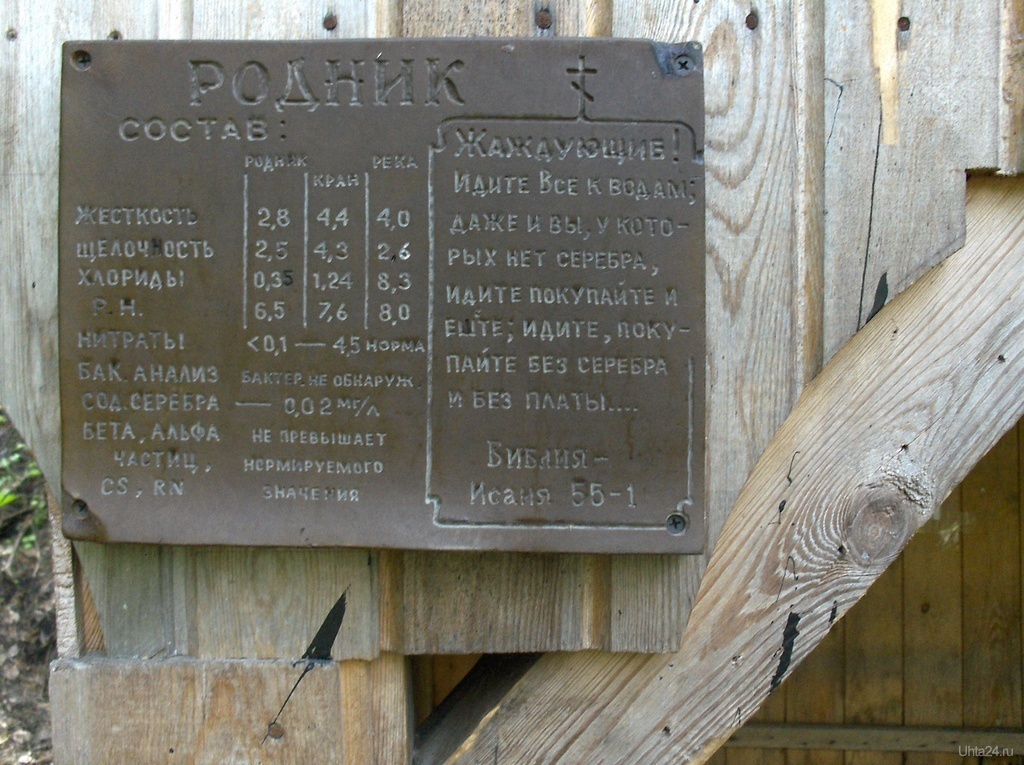 РОДНИК
СОСТАВ:
РОДНИК КРАН РЕКА
ЖЕСТКОСТЬ 2,8 4,4 4,0
ЩЕЛОЧНОСТЬ 2,5 4,3 2,6
ХЛОРИДЫ 0,35 1,24 8,3
P.H. 6,5 7,6 8,0
НИТРАТЫ <0,1 — 4,5 НОРМА
БАК. АНАЛИЗ БАКТЕР. НЕ ОБНАРУЖ.
СОД. СЕРЕБРА — 0,02 МГ/Л
БЕТА, АЛЬФА НЕ ПРЕВЫШАЕТ
ЧАСТИЦ, НОРМИРУЕМОГО
CS, RN ЗНАЧЕНИЯ
ЖАЖДУЮЩИЕ!
ИДИТЕ ВСЕ К ВОДАМ;
ДАЖЕ И ВЫ, У КОТО-
РЫХ НЕТ СЕРЕБРА,
ИДИТЕ ПОКУПАЙТЕ И
ЕШТЕ; ИДИТЕ, ПОКУ-
ПАЙТЕ БЕЗ СЕРЕБРА
И БЕЗ ПЛАТЫ....
БИБЛИЯ-
ИСАИЯ 55-1
Uhta24.ru